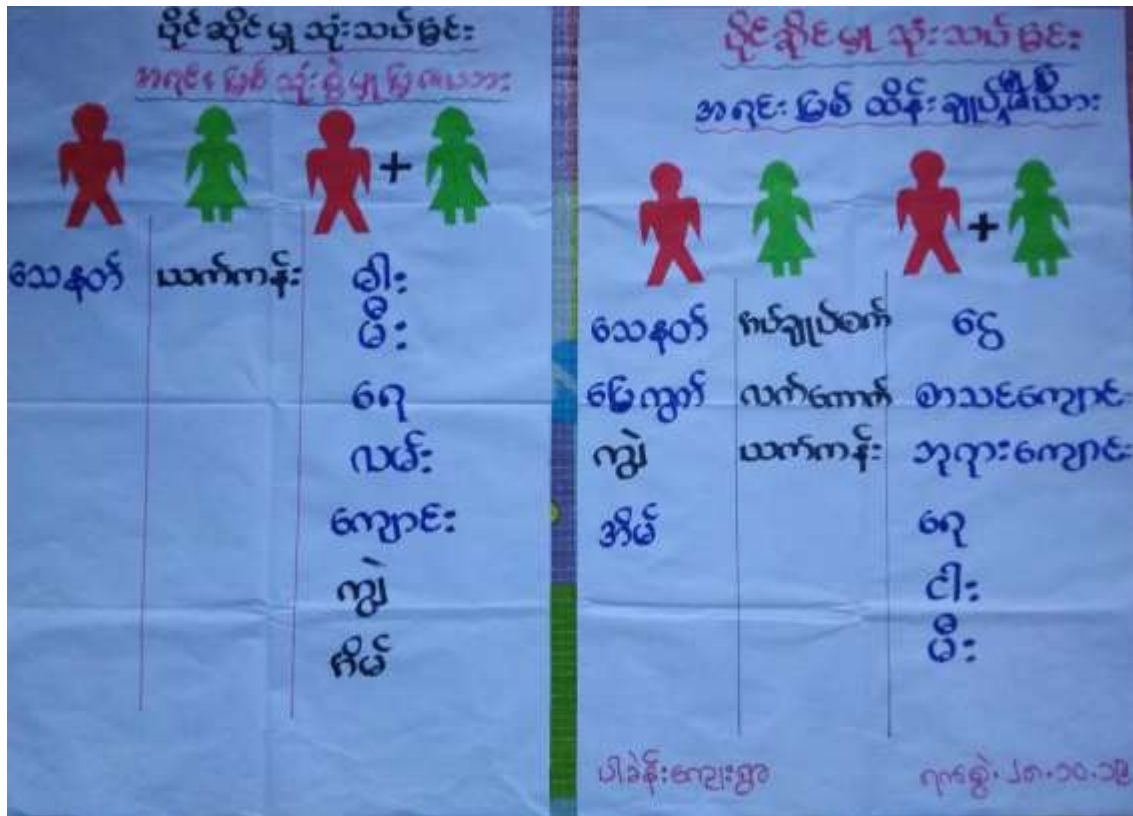 ပိုင်ဆိုင်မှု သုံးသပ်ခြင်း
အရင်းမြစ် သုံးစွဲမှု
+
သေနတ် ယက်ကန်း ဓါး
မီး
ရေ
လမ်း
ကျောင်း
ကျွဲ
အိမ်
ပိုင်ဆိုင်မှု သုံးသပ်ခြင်း
အရင်းမြစ် ထိန်းချုပ်မှု
+
သေနတ် အပ်ချုပ်စက် ငွေ
မြေကွက် လက်ကောက် စာသင်ကျောင်း
ကျွဲ ယက်ကန်း ဘုရားကျောင်း
အိမ် ရေ
ငါး
မီး
ရက်စွဲ